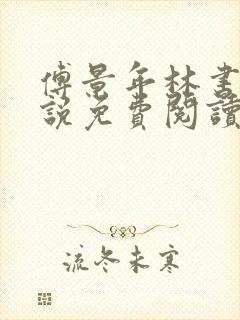 傅景年林書
說免費閱讀
流冬未寒